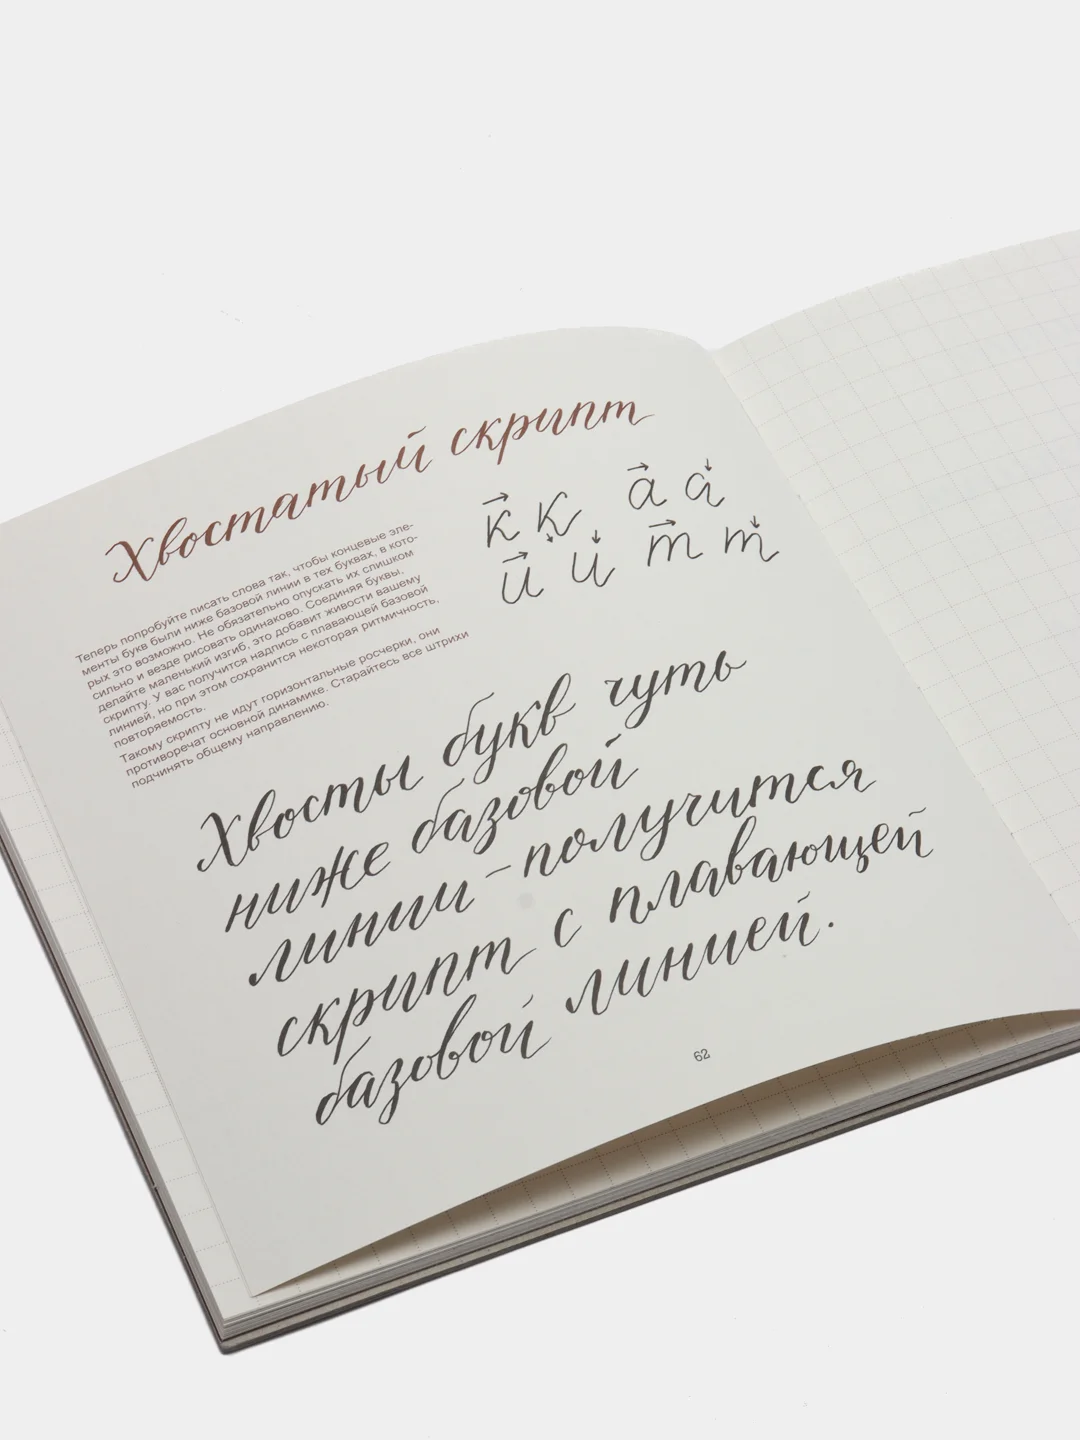 Хвостатый скрипт
Теперь попробуйте писать слова так, чтобы концевые эле-
менты букв были ниже базовой линии в тех буквах, в кото-
рых это возможно. Не обязательно опускать их слишком
сильно и везде рисовать одинаково. Соединяя буквы,
делайте маленький изгиб, это добавит живости вашему
скрипту. У вас получится надпись с плавающей базовой
линией, но при этом сохранится некоторая ритмичность,
повторяемость.
Такому скрипту не идут горизонтальные росчерки, они
противоречат основной динамике. Старайтесь все штрихи
подчинять общему направлению.
к к а а
и и т т
Хвосты букв чуть
ниже базовой
линии – получится
скрипт с плавающей
базовой линией.
62